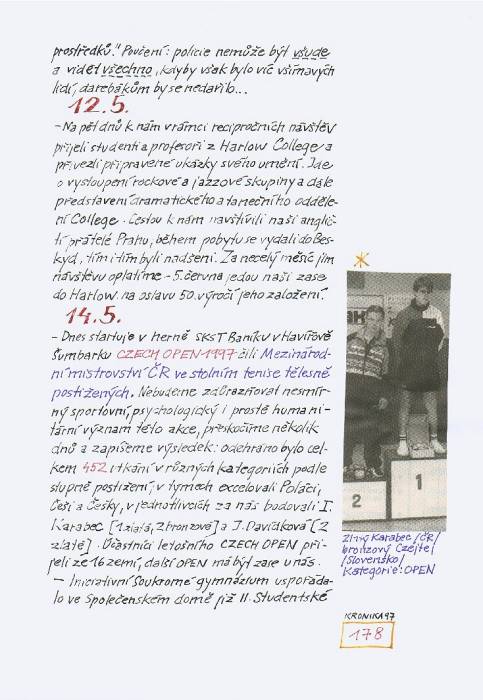 prostředků." Poučení: policie nemůže být všude
a vidět všechno, kdyby však bylo víc všímavých
lidí, darebákům by se nedařilo...
12.5.
- Na pět dnů k nám v rámci recipročních návštěv
přijeli studenti a profesoři z Harlow College a
přivezli připravené ukázky svého umění. Jde
o vystoupení rockové a jazzové skupiny a dále
představení dramatického a tanečního odděle-
ní College. Cestou k nám navštívili naši anglič-
tí přátelé Prahu, během pobytu se vydali do Bes-
kyd, tím i tím byli nadšení. Za necelý měsíc jim
návštěvu oplatíme - 5. června jedou naši zase
do Harlow na oslavu 50. výročí jeho založení.
14.5.
- Dnes startuje v herně SKST Baníku v Havířově
Šumbarku CZECH OPEN 1997 čili Mezinárod-
ní mistrovství ČR ve stolním tenise tělesně
postižených. Nebudeme zdůrazňovat nesmír-
ný sportovní, psychologický i prostě humani-
tární význam této akce, přeskočíme několik
dnů a zapíšeme výsledek: odehráno bylo cel-
kem 452 utkání v různých kategoriích podle
stupně postižení, v týmech excelovali Poláci,
Češi a Češky, v jednotlivcích za nás bodovali I.
Karabec [1 zlatá, 2 bronzové] a J. Davídková [2
zlaté]. Účastníci letošního CZECH OPEN při-
jeli ze 16 zemí, další OPEN má být zase u nás.
- Iniciativní Soukromé gymnázium uspořáda-
lo ve Společenském domě již II. Studentské
1
2
Zlatý Karabec /ČR/
bronzový Czejtei
/Slovensko/
Kategorie: OPEN
KRONIKA 97
178